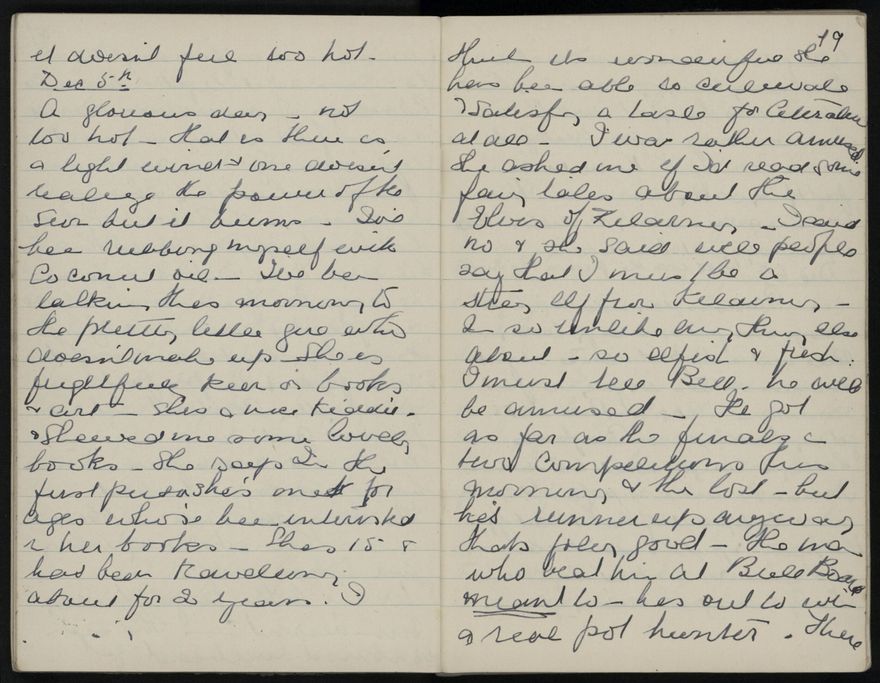 it doesn't feel too hot.
Dec 5th
A glorious day - not
too hot - that is there is
a light wind & one doesn't
realize the power of the
Sun but it burns - I've
been rubbing myself with
Coconut oil - I've been
talking this morning to
the pretty little girl who
doesn't make up - she is
frightfully keen on books
& art - she's a nice kiddie.
& Showed me some lovely
books - she says I'm the
first person she's met for
ages who's been interested
in her books - She's 15 &
has been travelling
about for 2 years. I
19
think its wonderful she
has been able to cultivate
& satisfy a taste for literature
at all - I was rather amused
she asked me if I'd read some
fairy tales about the
Elves of Killarney - I said
no & she said well people
say that I must be a
stray elf from Killarney -
I'm so unlike any thing else
about - so elfish & fresh.
I must tell Bill - he will
be amused - He got
as far as the finals in
two Competitions this
morning & then lost - but
he's runner up anyway
that's jolly good - The man
who beat him at Bull Board
meant to - he's out to win
a real pot hunter. There